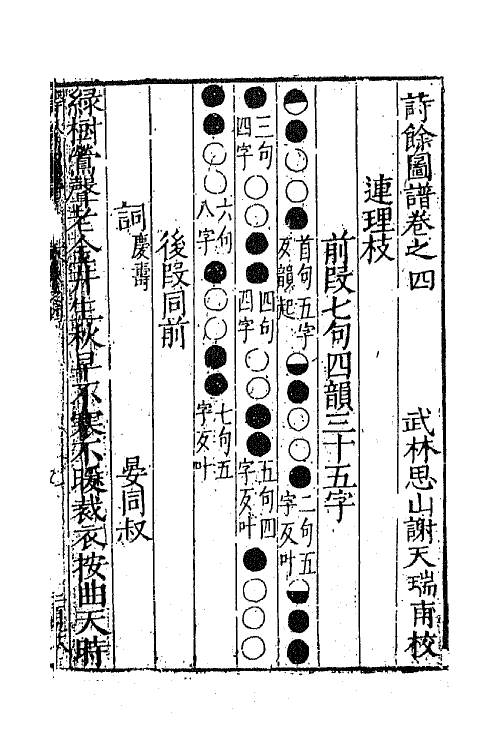 詩餘圖譜卷之四　武林思山謝天瑞甫校
連理枝
前段七句四韻三十五字
首句五字仄韻起　二句五字仄叶
三句四字　四句四字　五句四字仄叶
六句八字　七句五字仄叶
後段同前
詞 慶壽　晏同叔
綠樹鶯聲老金井生秋早不寒不暖裁衣按曲天時